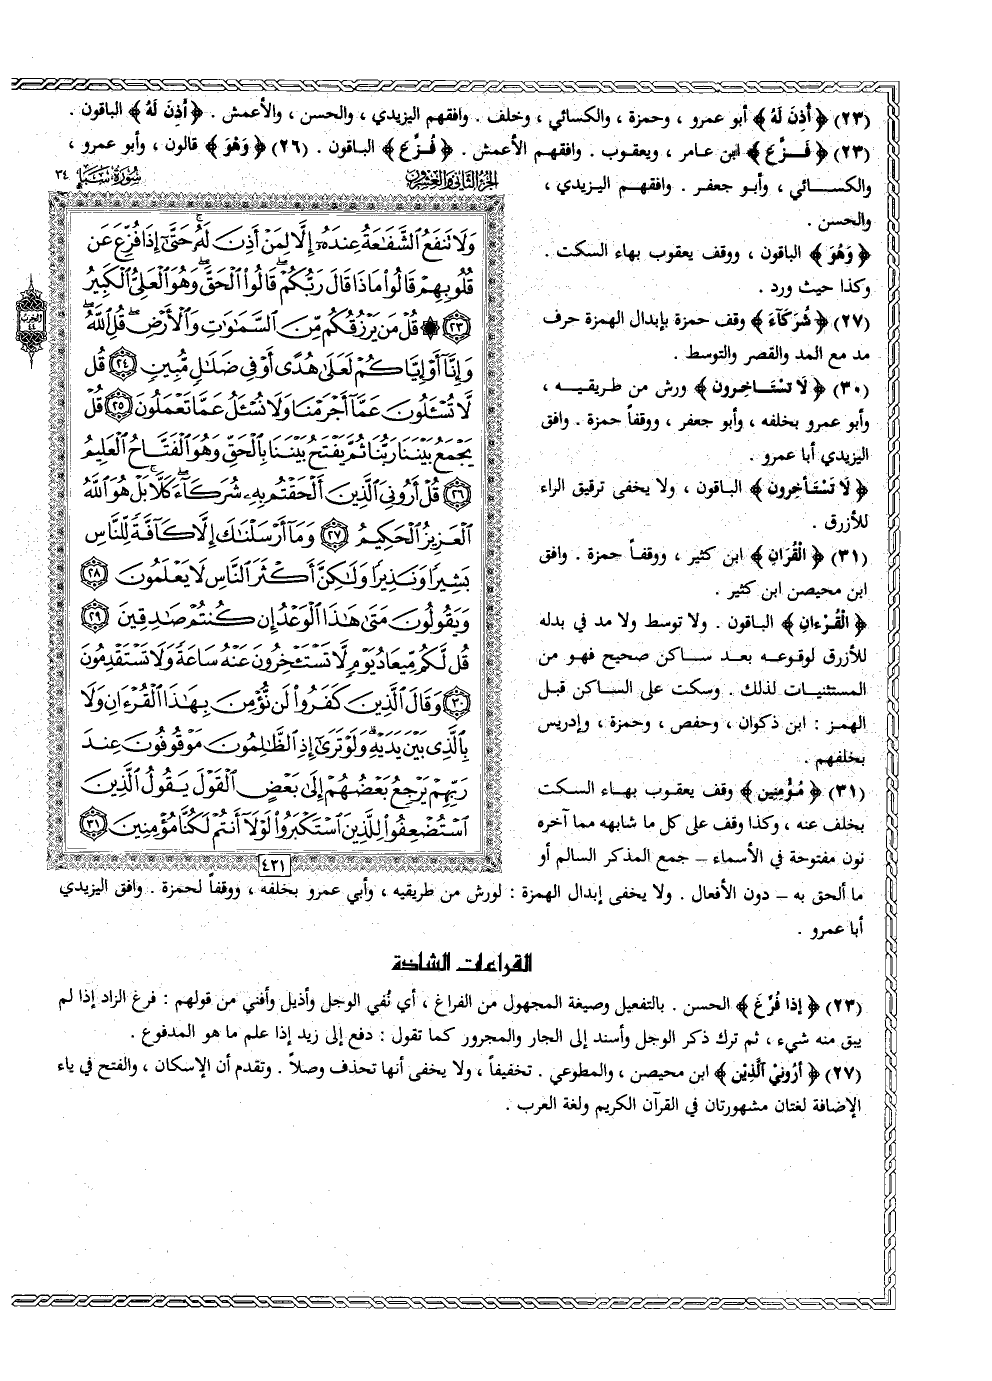 (٢٣) ﴿ أُذِنَ لَهُ ﴾ أبو عمرو ، وحمزة ، والكسائي ، وخلف . وافقهم اليزيدي ، والحسن ، والأعمش . ﴿ أَذِنَ لَهُ ﴾ الباقون .
(٢٣) ﴿ فَزَّعَ ﴾ ابن عامر ، ويعقوب . وافقهم الأعمش . ﴿ فُزِّعَ ﴾ الباقون . (٢٦) ﴿ وَهْوَ ﴾ قالون ، وأبو عمرو ،
والكسائي ، وأبو جعفر . وافقهم اليزيدي ،
والحسن .
﴿ وَهُوَ ﴾ الباقون ، ووقف يعقوب بهاء السكت .
وكذا حيث ورد .
(٢٧) ﴿ شُرَكَآءَ ﴾ وقف حمزة بإبدال الهمزة حرف
مد مع المد والقصر والتوسط .
(٣٠) ﴿ لَا تَسْتَاخِرون ﴾ ورش من طريقيه ،
وأبو عمرو بخلفه ، وأبو جعفر ، ووقفاً حمزة . وافق
اليزيدي أبا عمرو .
﴿ لَا تَسْتَأخِرون ﴾ الباقون ، ولا يخفى ترقيق الراء
للأزرق .
(٣١) ﴿ الْقُرَانِ ﴾ ابن كثير ، ووقفاً حمزة . وافق
ابن محيصن ابن كثير .
﴿ الْقُرْءانِ ﴾ الباقون . ولا توسط ولا مد في بدله
للأزرق لوقوعه بعد ساكن صحيح فهو من
المستثنيات لذلك . وسكت على الساكن قبل
الهمز : ابن ذكوان ، وحفص ، وحمزة ، وإدريس
بخلفهم .
(٣١) ﴿ مُؤْمِنِين ﴾ وقف يعقوب بهاء السكت
بخلف عنه ، وكذا وقف على كل ما شابهه مما آخره
نون مفتوحة في الأسماء – جمع المذكر السالم أو
ما ألحق به – دون الأفعال . ولا يخفى إبدال الهمزة : لورش من طريقيه ، وأبي عمرو بخلفه ، ووقفاً لحمزة . وافق اليزيدي
أبا عمرو .
الجزء الثاني والعشرون
سورة سبأ ٣٤
وَلَا تَنفَعُ الشَّفَاعَةُ عِندَهُ إِلَّا لِمَنْ أَذِنَ لَهُ حَتَّىٰ إِذَا فُزِّعَ عَن
قُلُوبِهِمْ قَالُوا مَاذَا قَالَ رَبُّكُمْ قَالُوا الْحَقَّ وَهُوَ الْعَلِيُّ الْكَبِيرُ
٢٣ ۞ قُلْ مَن يَرْزُقُكُم مِّنَ السَّمَاوَاتِ وَالْأَرْضِ قُلِ اللَّهُ
وَإِنَّا أَوْ إِيَّاكُمْ لَعَلَىٰ هُدًى أَوْ فِي ضَلَالٍ مُّبِينٍ ٢٤ قُل
لَّا تُسْـَٔلُونَ عَمَّا أَجْرَمْنَا وَلَا نُسْـَٔلُ عَمَّا تَعْمَلُونَ ٢٥ قُلْ
يَجْمَعُ بَيْنَنَا رَبُّنَا ثُمَّ يَفْتَحُ بَيْنَنَا بِالْحَقِّ وَهُوَ الْفَتَّاحُ الْعَلِيمُ
٢٦ قُلْ أَرُونِيَ الَّذِينَ أَلْحَقْتُم بِهِ شُرَكَاءَ كَلَّا بَلْ هُوَ اللَّهُ
الْعَزِيزُ الْحَكِيمُ ٢٧ وَمَا أَرْسَلْنَاكَ إِلَّا كَافَّةً لِّلنَّاسِ
بَشِيرًا وَنَذِيرًا وَلَٰكِنَّ أَكْثَرَ النَّاسِ لَا يَعْلَمُونَ ٢٨
وَيَقُولُونَ مَتَىٰ هَٰذَا الْوَعْدُ إِن كُنتُمْ صَادِقِينَ ٢٩
قُل لَّكُم مِّيعَادُ يَوْمٍ لَّا تَسْتَـْٔخِرُونَ عَنْهُ سَاعَةً وَلَا تَسْتَقْدِمُونَ
٣٠ وَقَالَ الَّذِينَ كَفَرُوا لَن نُّؤْمِنَ بِهَٰذَا الْقُرْءَانِ وَلَا
بِالَّذِي بَيْنَ يَدَيْهِ وَلَوْ تَرَىٰ إِذِ الظَّالِمُونَ مَوْقُوفُونَ عِندَ
رَبِّهِمْ يَرْجِعُ بَعْضُهُمْ إِلَىٰ بَعْضٍ الْقَوْلَ يَقُولُ الَّذِينَ
اسْتُضْعِفُوا لِلَّذِينَ اسْتَكْبَرُوا لَوْلَا أَنتُمْ لَكُنَّا مُؤْمِنِينَ ٣١
٤٣١
الحزب
٤٤
القراءات الشاذة
(٢٣) ﴿ إذا فُرِّغَ ﴾ الحسن . بالتفعيل وصيغة المجهول من الفراغ ، أي نُفي الوجل وأذيل وأفني من قولهم : فرغ الزاد إذا لم
يبق منه شيء ، ثم ترك ذكر الوجل وأسند إلى الجار والمجرور كما تقول : دفع إلى زيد إذا علم ما هو المدفوع .
(٢٧) ﴿ أرُونِيْ الَّذِيْن ﴾ ابن محيصن ، والمطوعي . تخفيفاً ، ولا يخفى أنها تحذف وصلاً . وتقدم أن الإسكان ، والفتح في ياء
الإضافة لغتان مشهورتان في القرآن الكريم ولغة العرب .